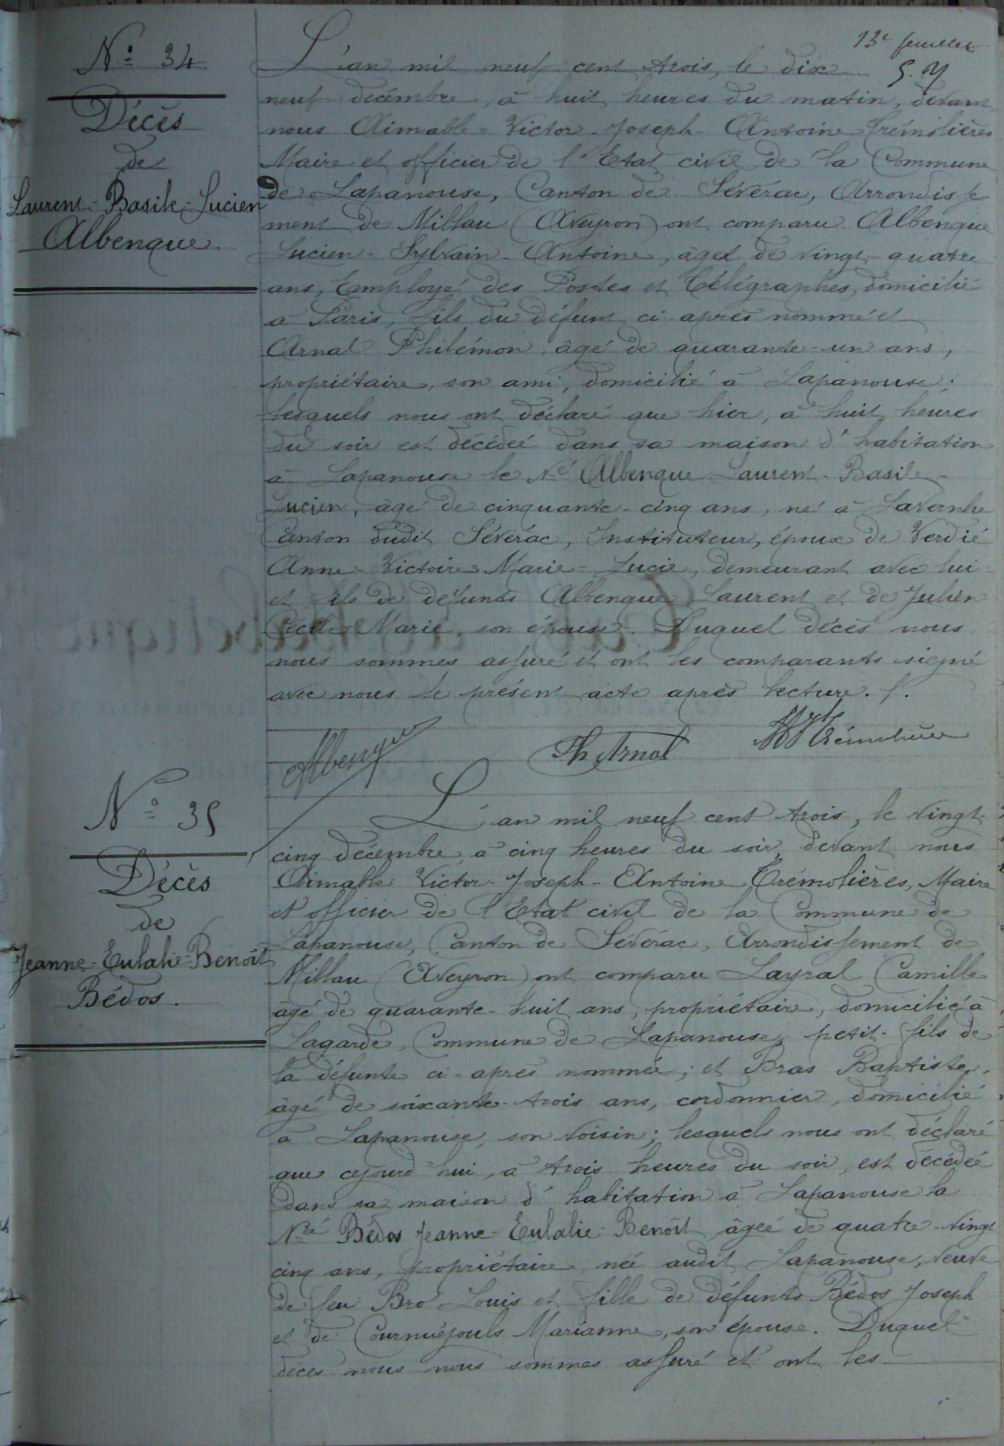 13e feuillet
N° 34
Décès
de
Laurent-Basile-Lucien
Albenque.
L'an mil neuf cent trois, le dix
neuf décembre, à huit heures du matin, devant
nous Aimable-Victor-Joseph-Antoine Trémolières
Maire et officier de l'Etat civil de la Commune
de Lapanouse, Canton de Sévérac, Arrondisse
ment de Millau (Aveyron) ont comparu Albenque
Lucien-Sylvain-Antoine, âgé de vingt-quatre
ans, Employé des Postes et Télégraphes, domicilié
à Paris, fils du défunt ci-après nommé et
Arnal Philémon, âgé de quarante-un ans,
propriétaire, son ami, domicilié à Lapanouse;
lesquels nous ont déclaré que hier, à huit heures
du soir est décédé dans sa maison d'habitation
à Lapanouse le Né Albenque Laurent-Basile-
Lucien, âgé de cinquante-cinq ans, né à Lavernhe
Canton dudit Sévérac, Instituteur, époux de Verdié
Anne-Victoire-Marie-Lucie, demeurant avec lui
et fils de défunts Albenque Laurent et de Julien
Cécile-Marie, son épouse. Duquel décès nous
nous sommes assuré et ont les comparants signé
avec nous le présent acte après lecture. f.
Albenque
Ph Arnal
Trémolières
N° 35
Décès
de
Jeanne-Eulalie-Benoît
Bédos.
L'an mil neuf cent trois, le vingt-
cinq décembre, à cinq heures du soir, devant nous
Aimable Victor-Joseph-Antoine Trémolières, Maire
et officier de l'Etat civil de la Commune de
Lapanouse, Canton de Sévérac, Arrondissement de
Millau (Aveyron) ont comparu Layral Camille
âgé de quarante-huit ans, propriétaire, domicilié à
Lagarde, Commune de Lapanouse, petit-fils de
la défunte ci-après nommée; et Bras Baptiste,
âgé de soixante-trois ans, cordonnier, domicilié
à Lapanouse, son voisin; lesquels nous ont déclaré
que cejourd'hui, à trois heures du soir, est décédée
dans sa maison d'habitation à Lapanouse la
Née Bédos Jeanne-Eulalie-Benoît âgée de quatre-vingt
cinq ans, propriétaire, née audit Lapanouse, veuve
de feu Bro Louis et fille de défunts Bédos Joseph
et de Cournuéjouls Marianne, son épouse. Duquel
décès nous nous sommes assuré et ont les